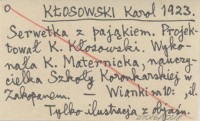 o KŁOSOWSKI Karol 1923.
Serwetka z pająkiem. Projek-
tował K. Kłosowski. Wyko-
nała K. Maternicka, nauczy-
cielka Szkoły Koronkarskiej w
Zakopanem. — Wianki s. 10: il.
Tylko ilustracja z objaśn.